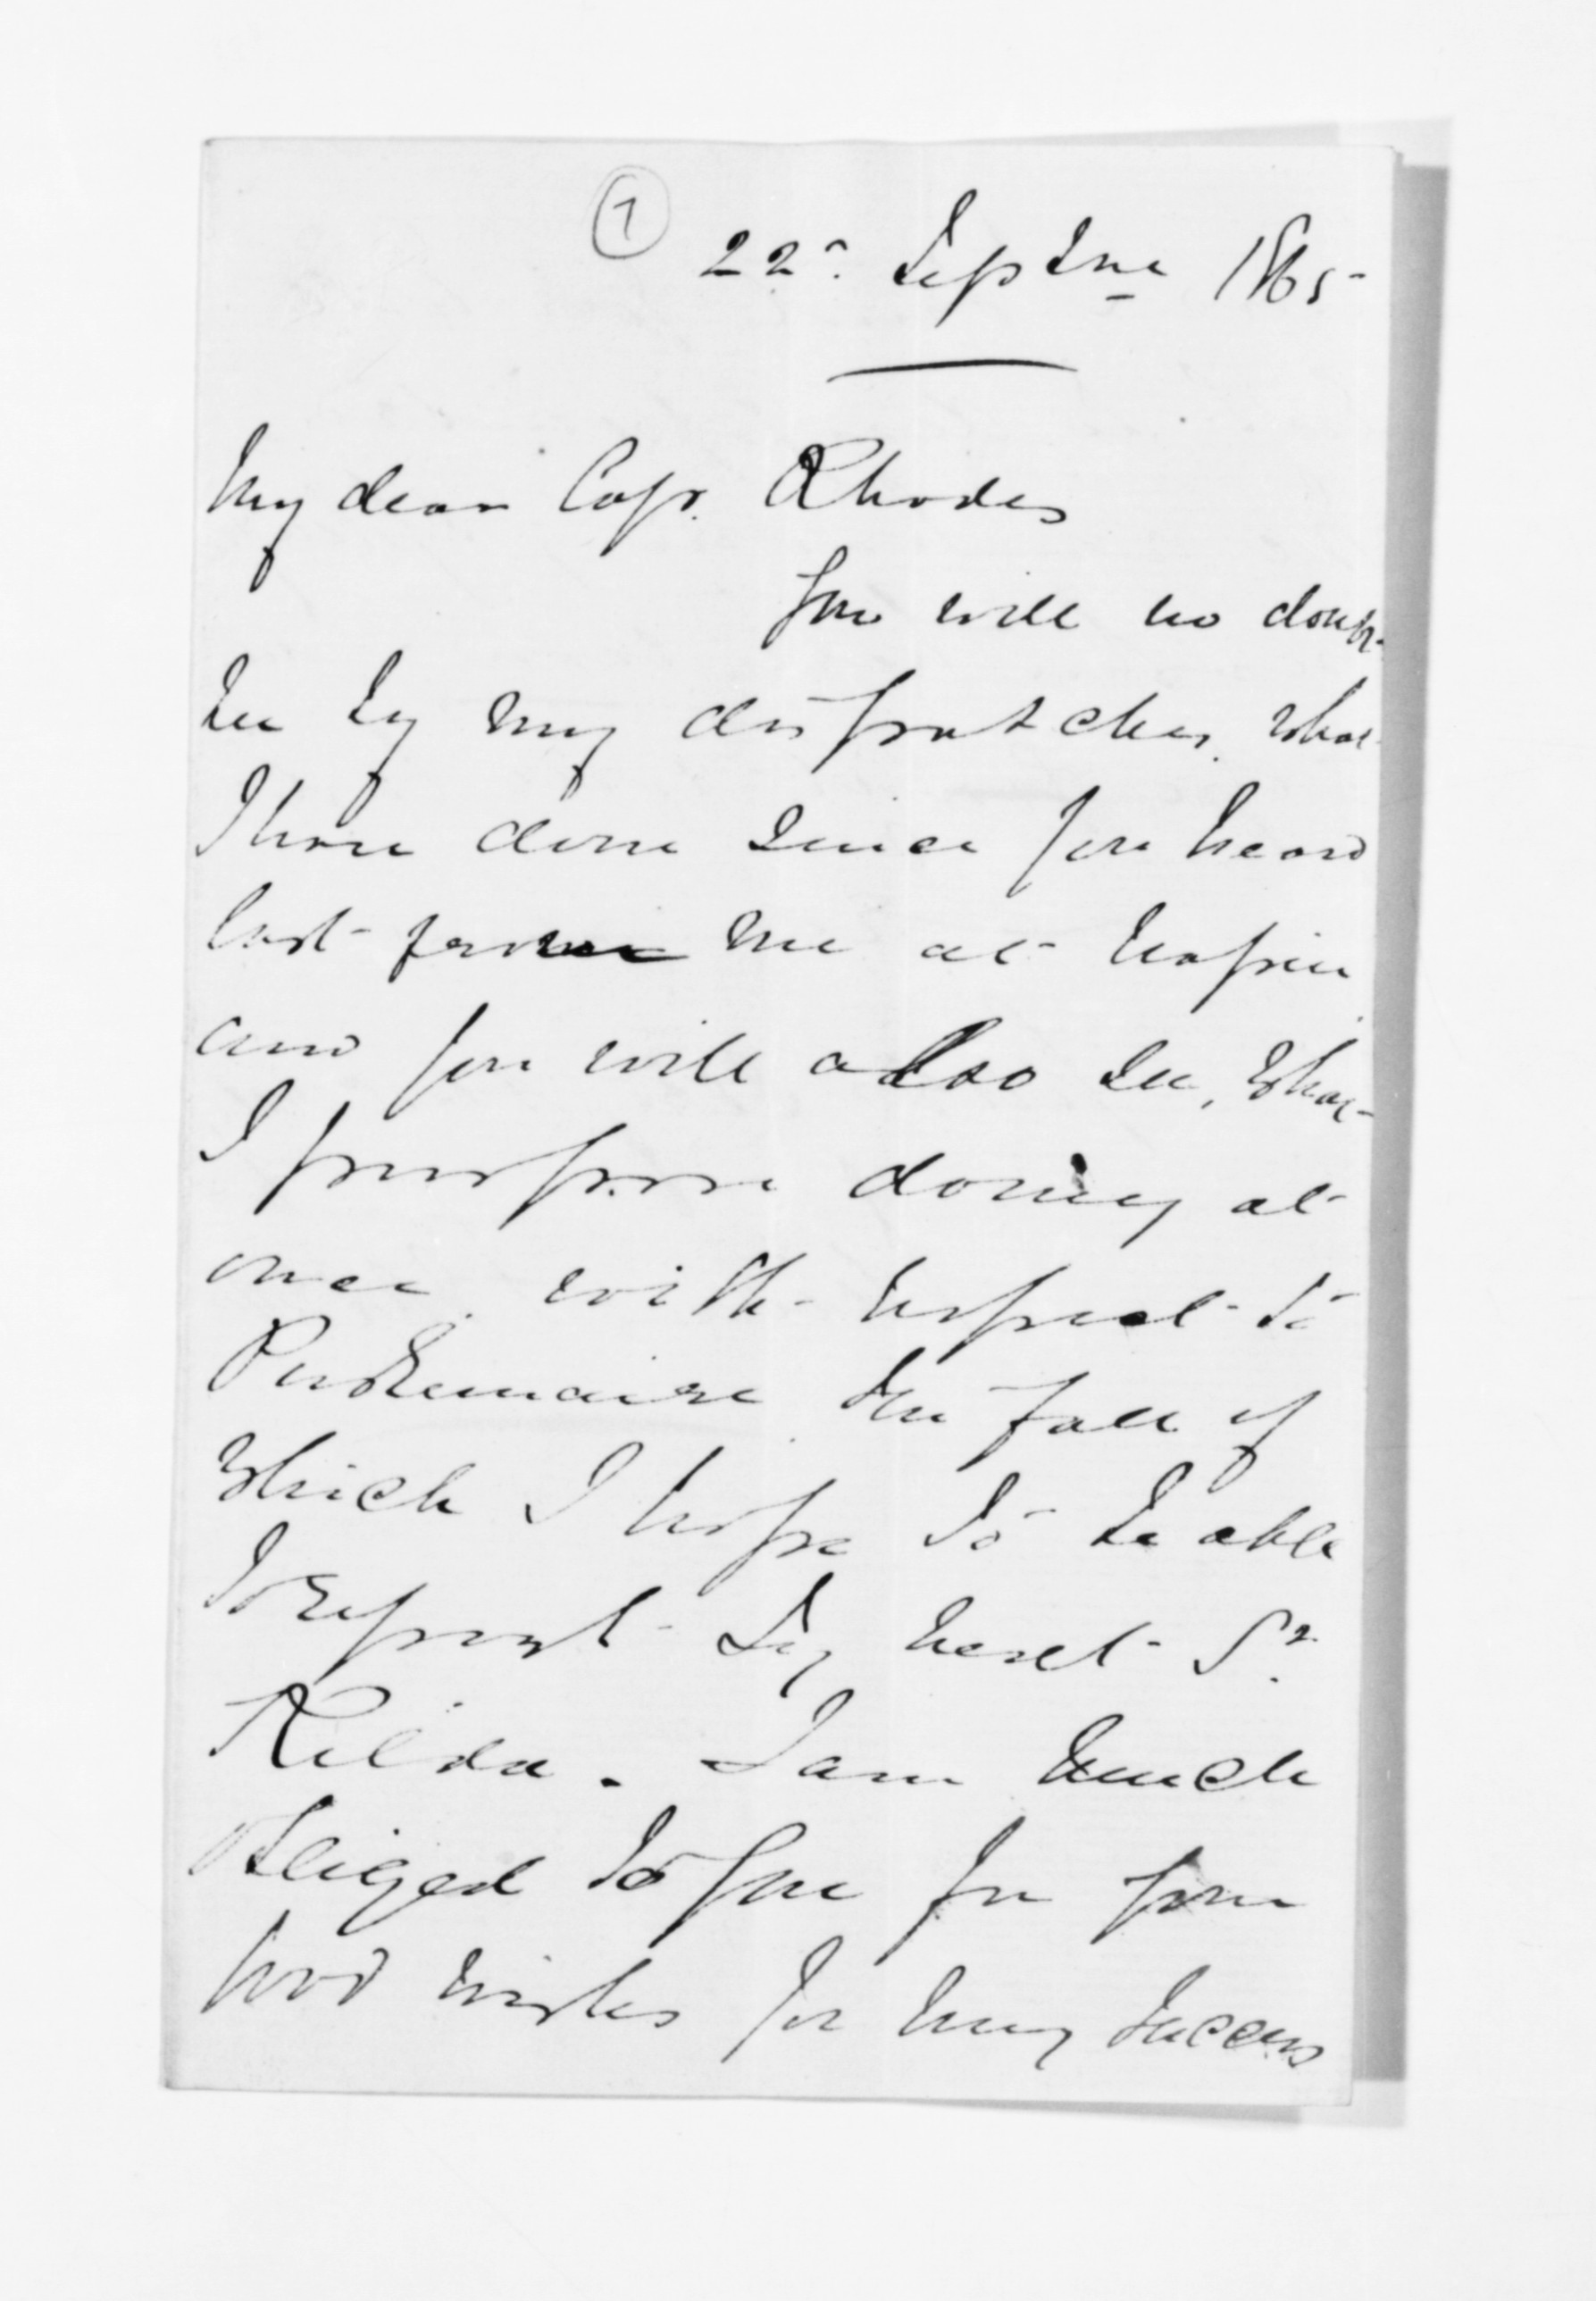 1
22nd Septbr 1865
My dear Capt. Rhodes
You will no doubt
see by my dispatches, what
I have done since you heard
last from me at Napier
and you will also see, what
I purpose doing at
once, with respect to
the fall of
which I hope to be able
to report by next St
Kilda. I am much
obliged to you for your
good wishes for my success